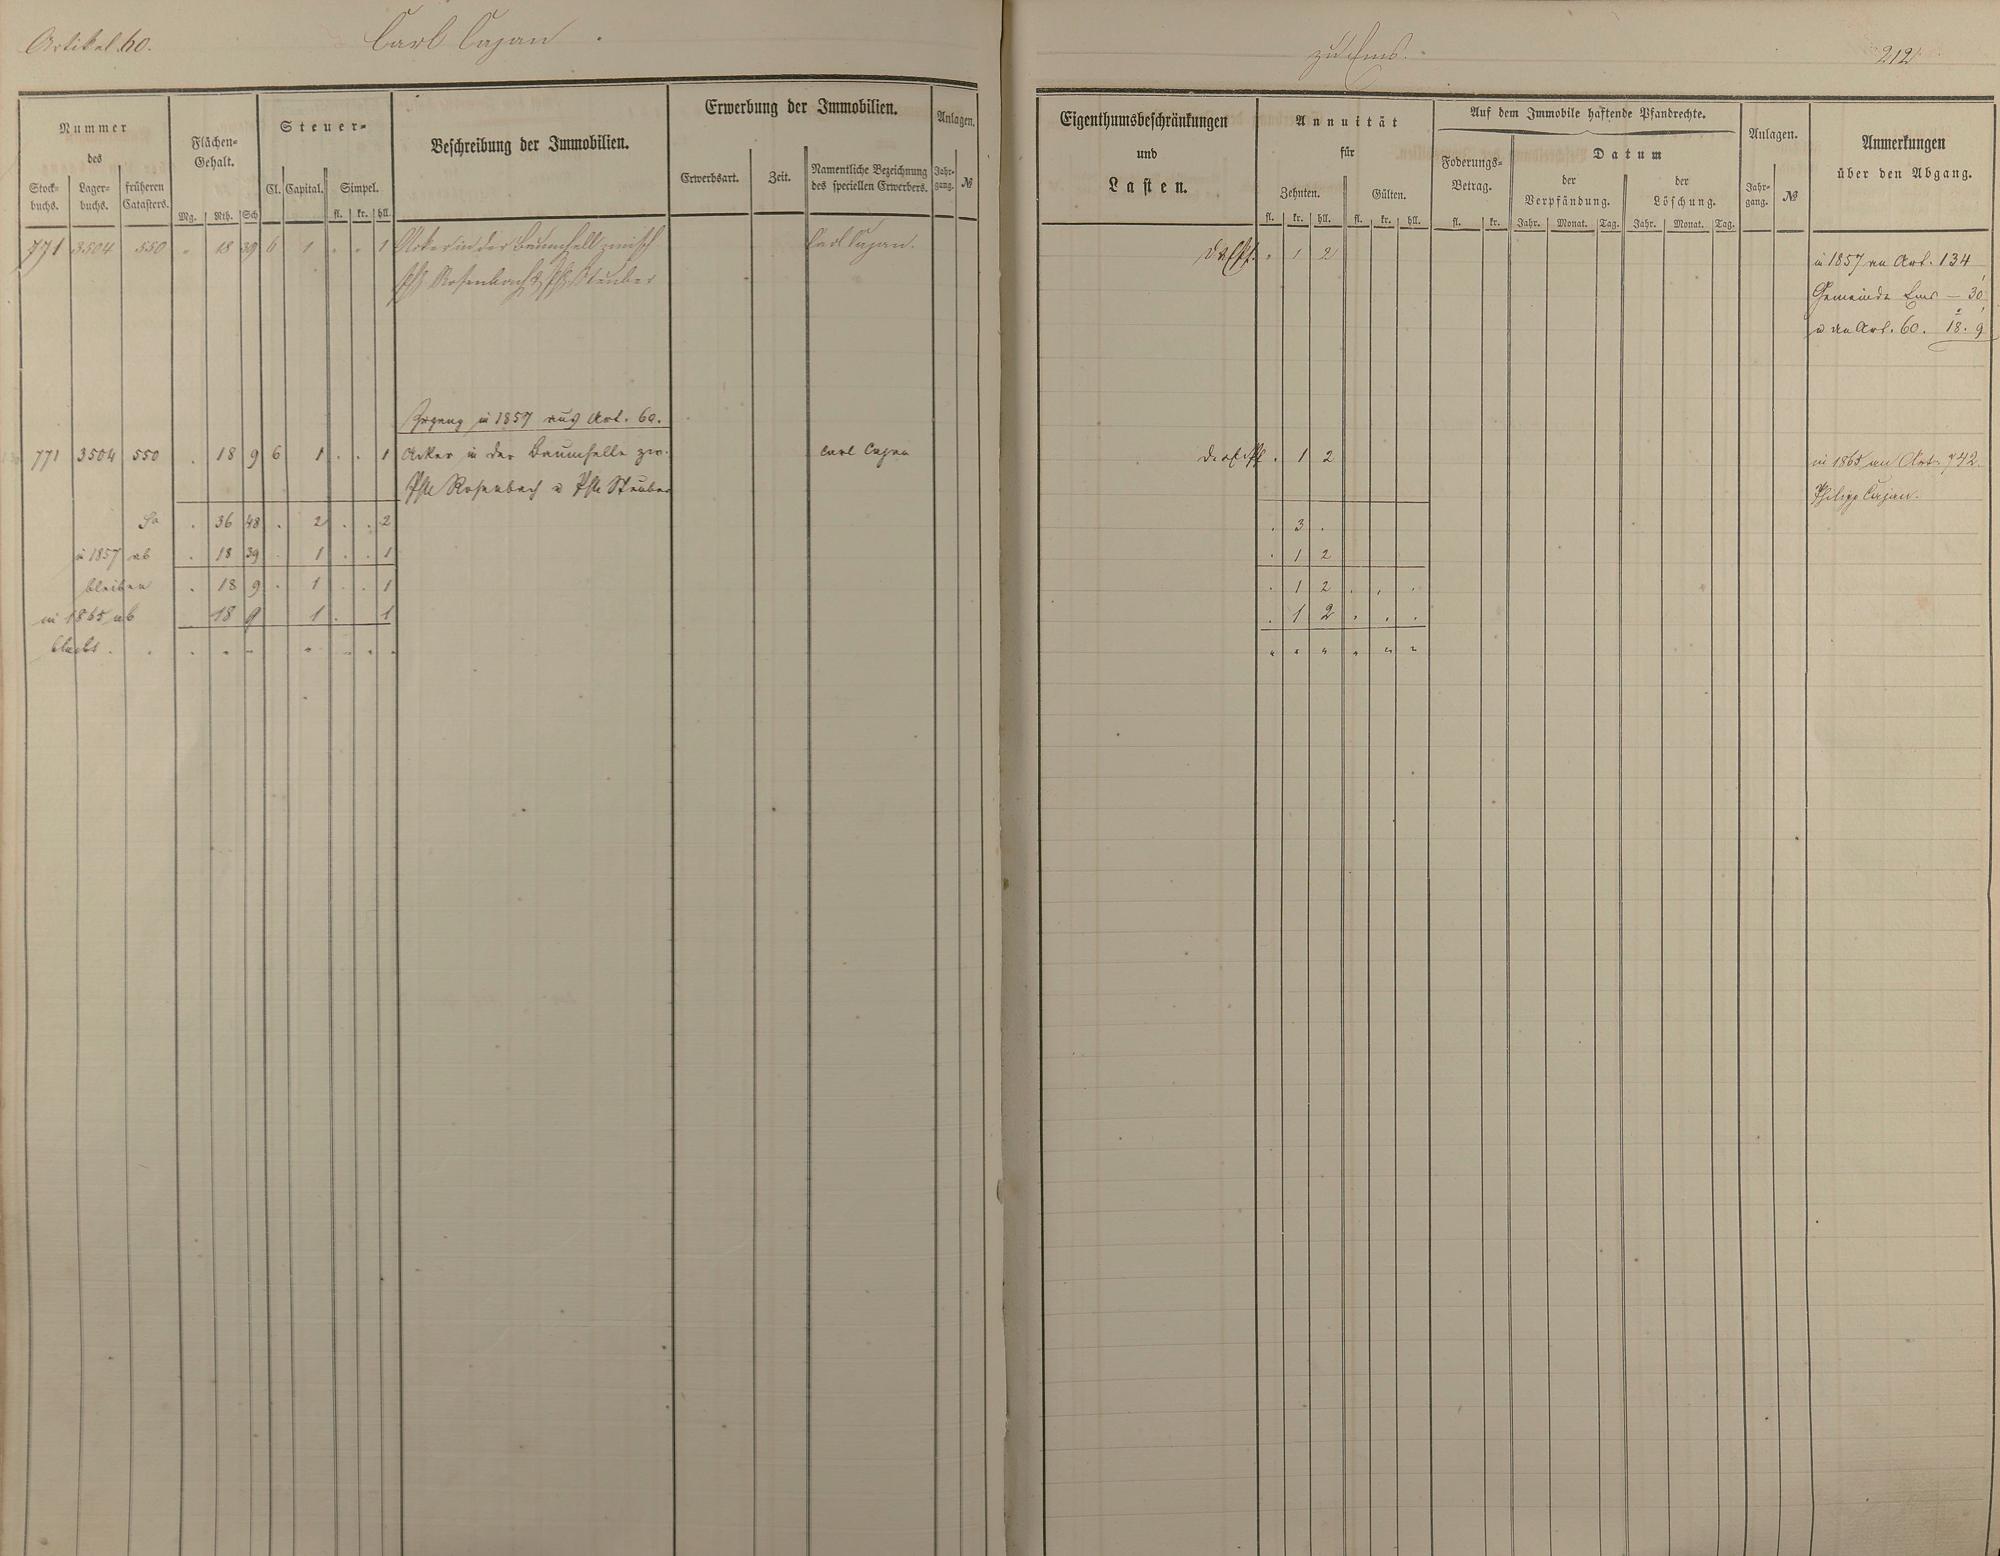 Artikel 60. Carl Cajan.
Nummer des
Stockbuchs. Lagerbuchs. früheren Catasters.
Flächen-Gehalt.
Mg. Rth. Sch
Steuer-
Cl. Capital. Simpel.
fl. kr. hll.
Beschreibung der Immobilien.
Erwerbung der Immobilien.
Erwerbsart. Zeit. Namentliche Bezeichnung des speciellen Erwerbers.
Anlagen.
Jahrgang. №
771 3504 550 . 18 39 6 1 . . 1 Acker in der Baumfelle zwisch Carl Cajan.
Rosenbach & Steuber
Zugang in 1857 aus Art. 60.
771 3504 550 . 18 9 6 1 . . 1 Acker in der Baumfelle zw. Carl Cajan
Rosenbach u Steuber
Sa . 36 48 . 2 . . 2
in 1857 ab . 18 39 . 1 . . 1
bleiben . 18 9 . 1 . . 1
in 1865 ab 18 9 1 . 1
bleibt . . . " " " " " "
zu Ems. 212
Eigenthumsbeschränkungen
und
Lasten.
Annuität
für
Zehnten. Gülten.
fl. kr. hll. fl. kr. hll.
Auf dem Immobile haftende Pfandrechte.
Foderungs-Betrag.
fl. kr.
Datum
der Verpfändung. der Löschung.
Jahr. Monat. Tag. Jahr. Monat. Tag.
Anlagen.
Jahrgang. №
Anmerkungen
über den Abgang.
. 1 2 in 1857 an Art. 134
Gemeinde Ems — 30
u an Art. 60. 18. 9
. 1 2 in 1865 an Art. 742.
Philipp Cajan.
. 3 .
. 1 2
. 1 2 . . .
. 1 2 . . .
" " " " " "